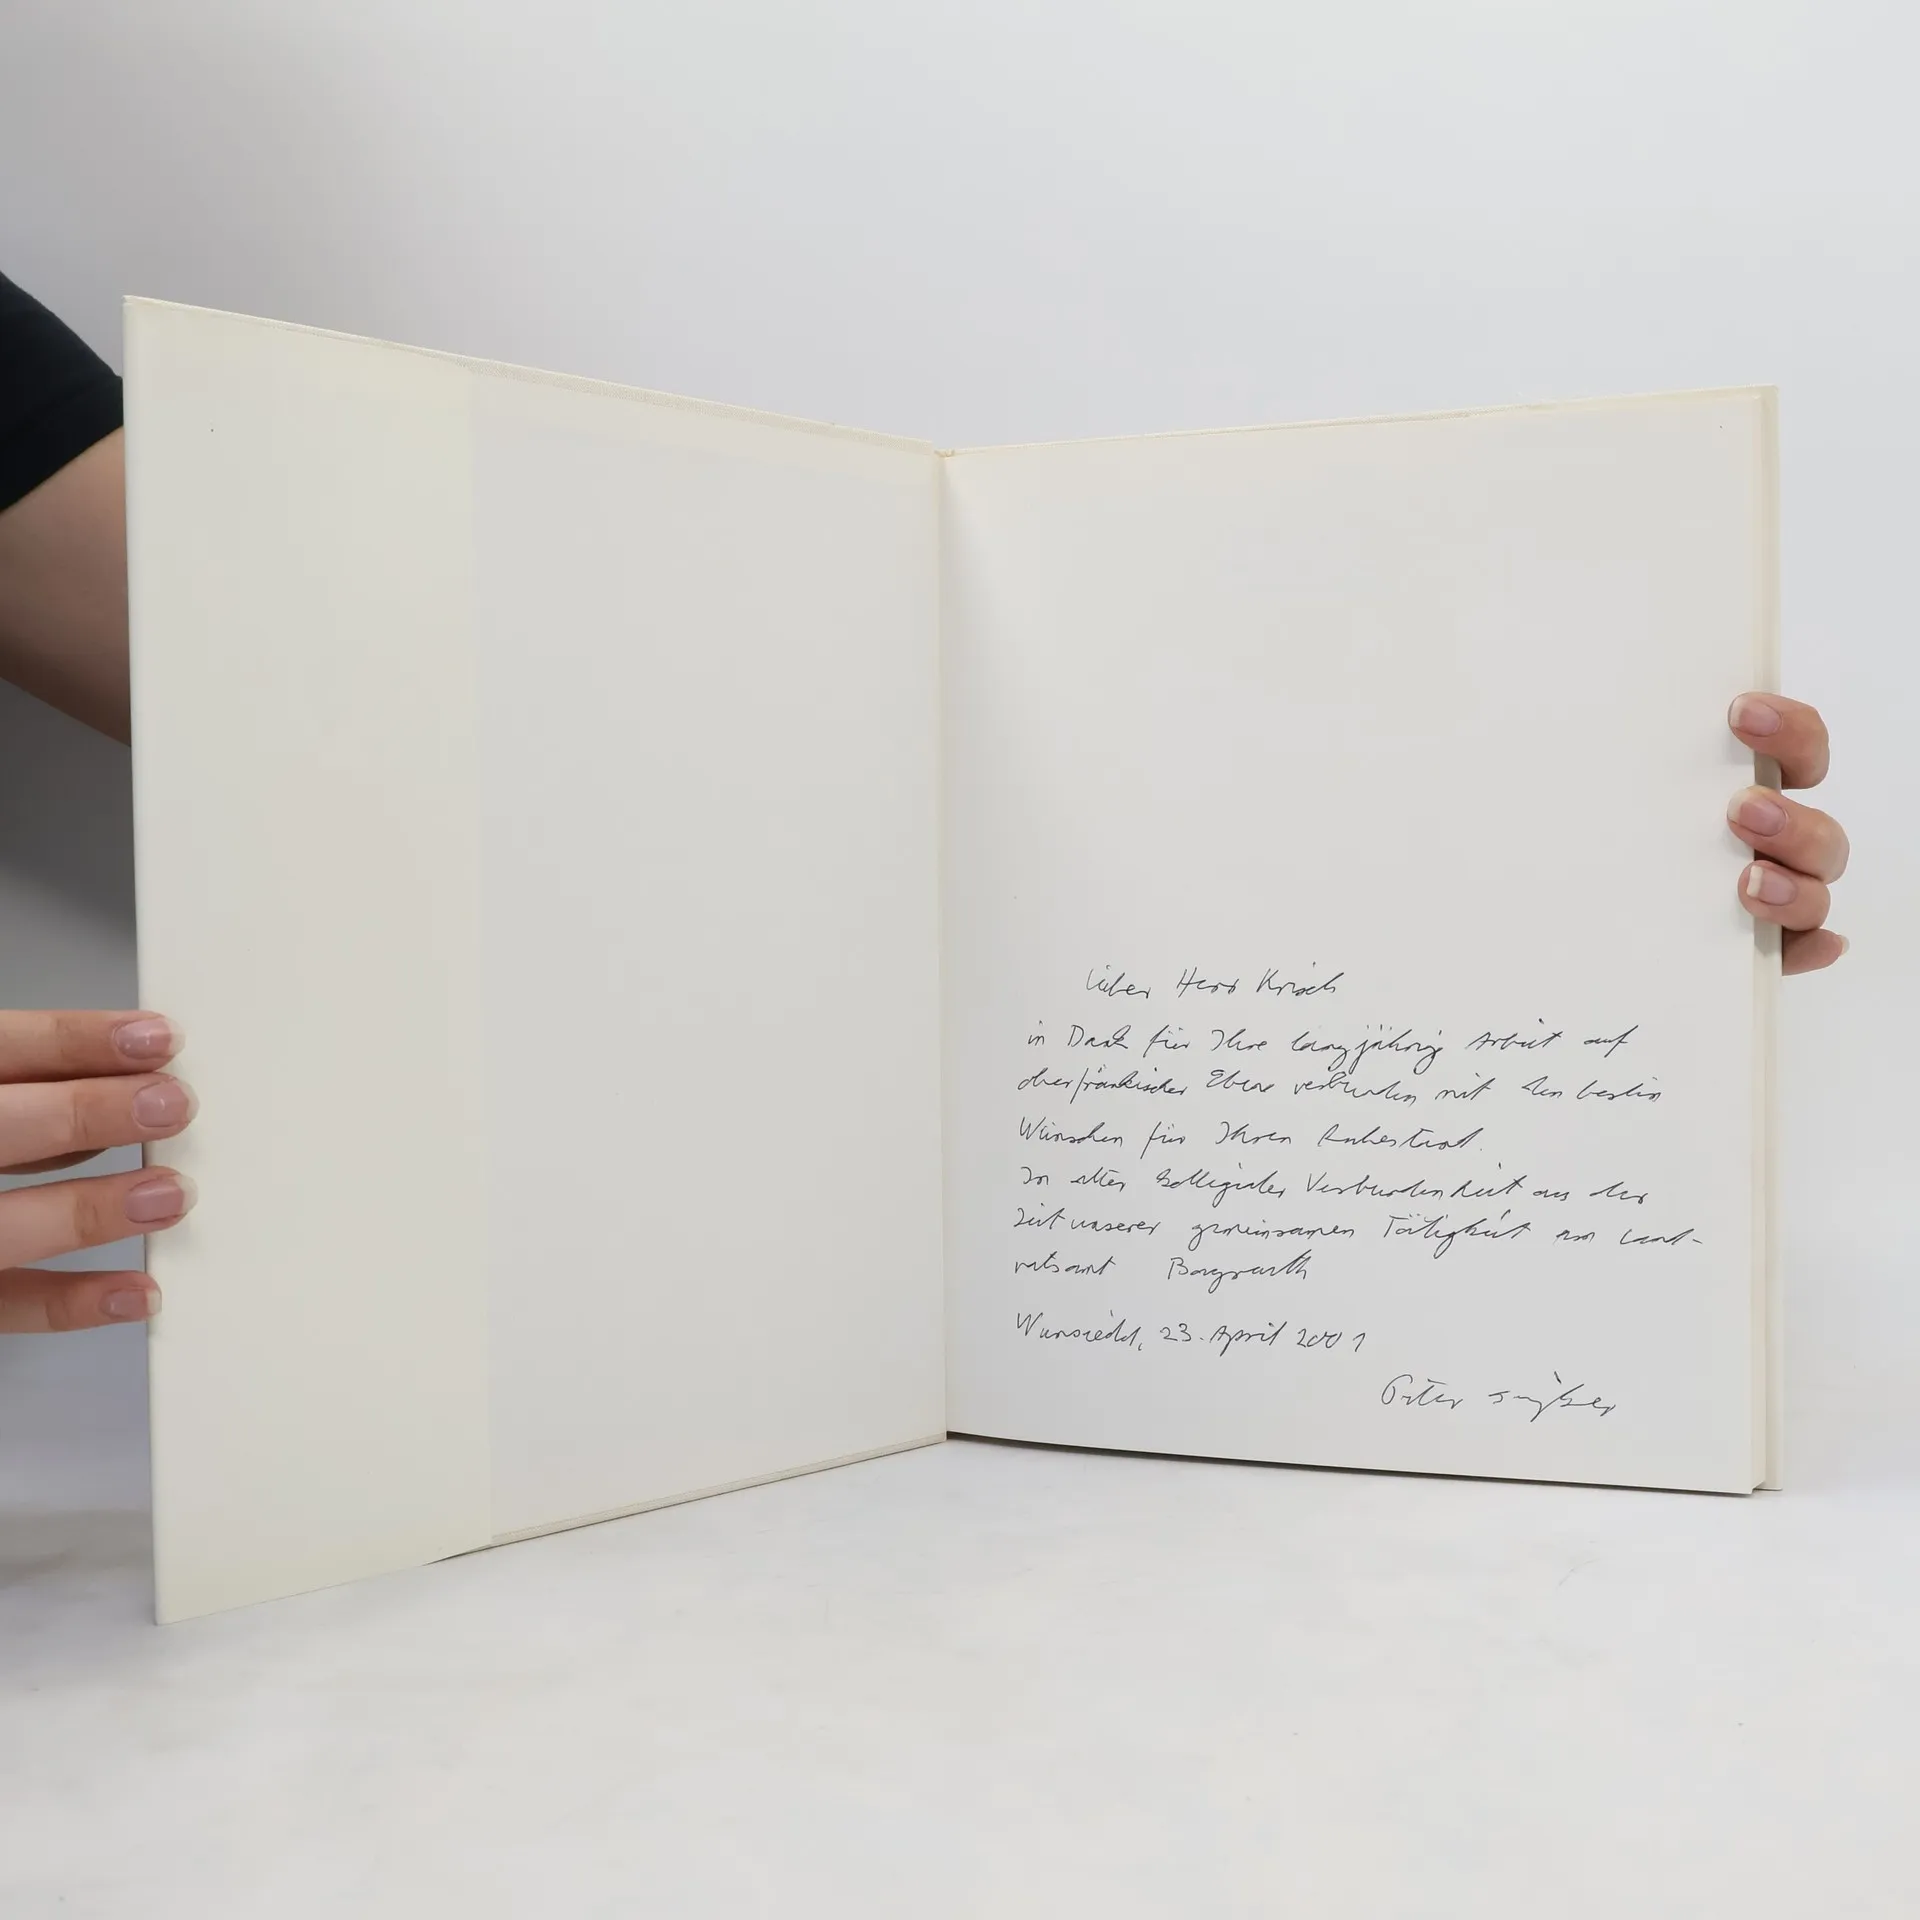 Lieber Herr Krisch
in Dank für Ihre langjährig Arbeit auf
oberfränkischer Ebene verbunden mit den besten
Wünschen für Ihren Ruhestand.
In alter kollegialer Verbundenheit aus der
Zeit unserer gemeinsamen Tätigkeit am Land-
ratsamt Bayreuth
Wunsiedel, 23. April 2001
Peter